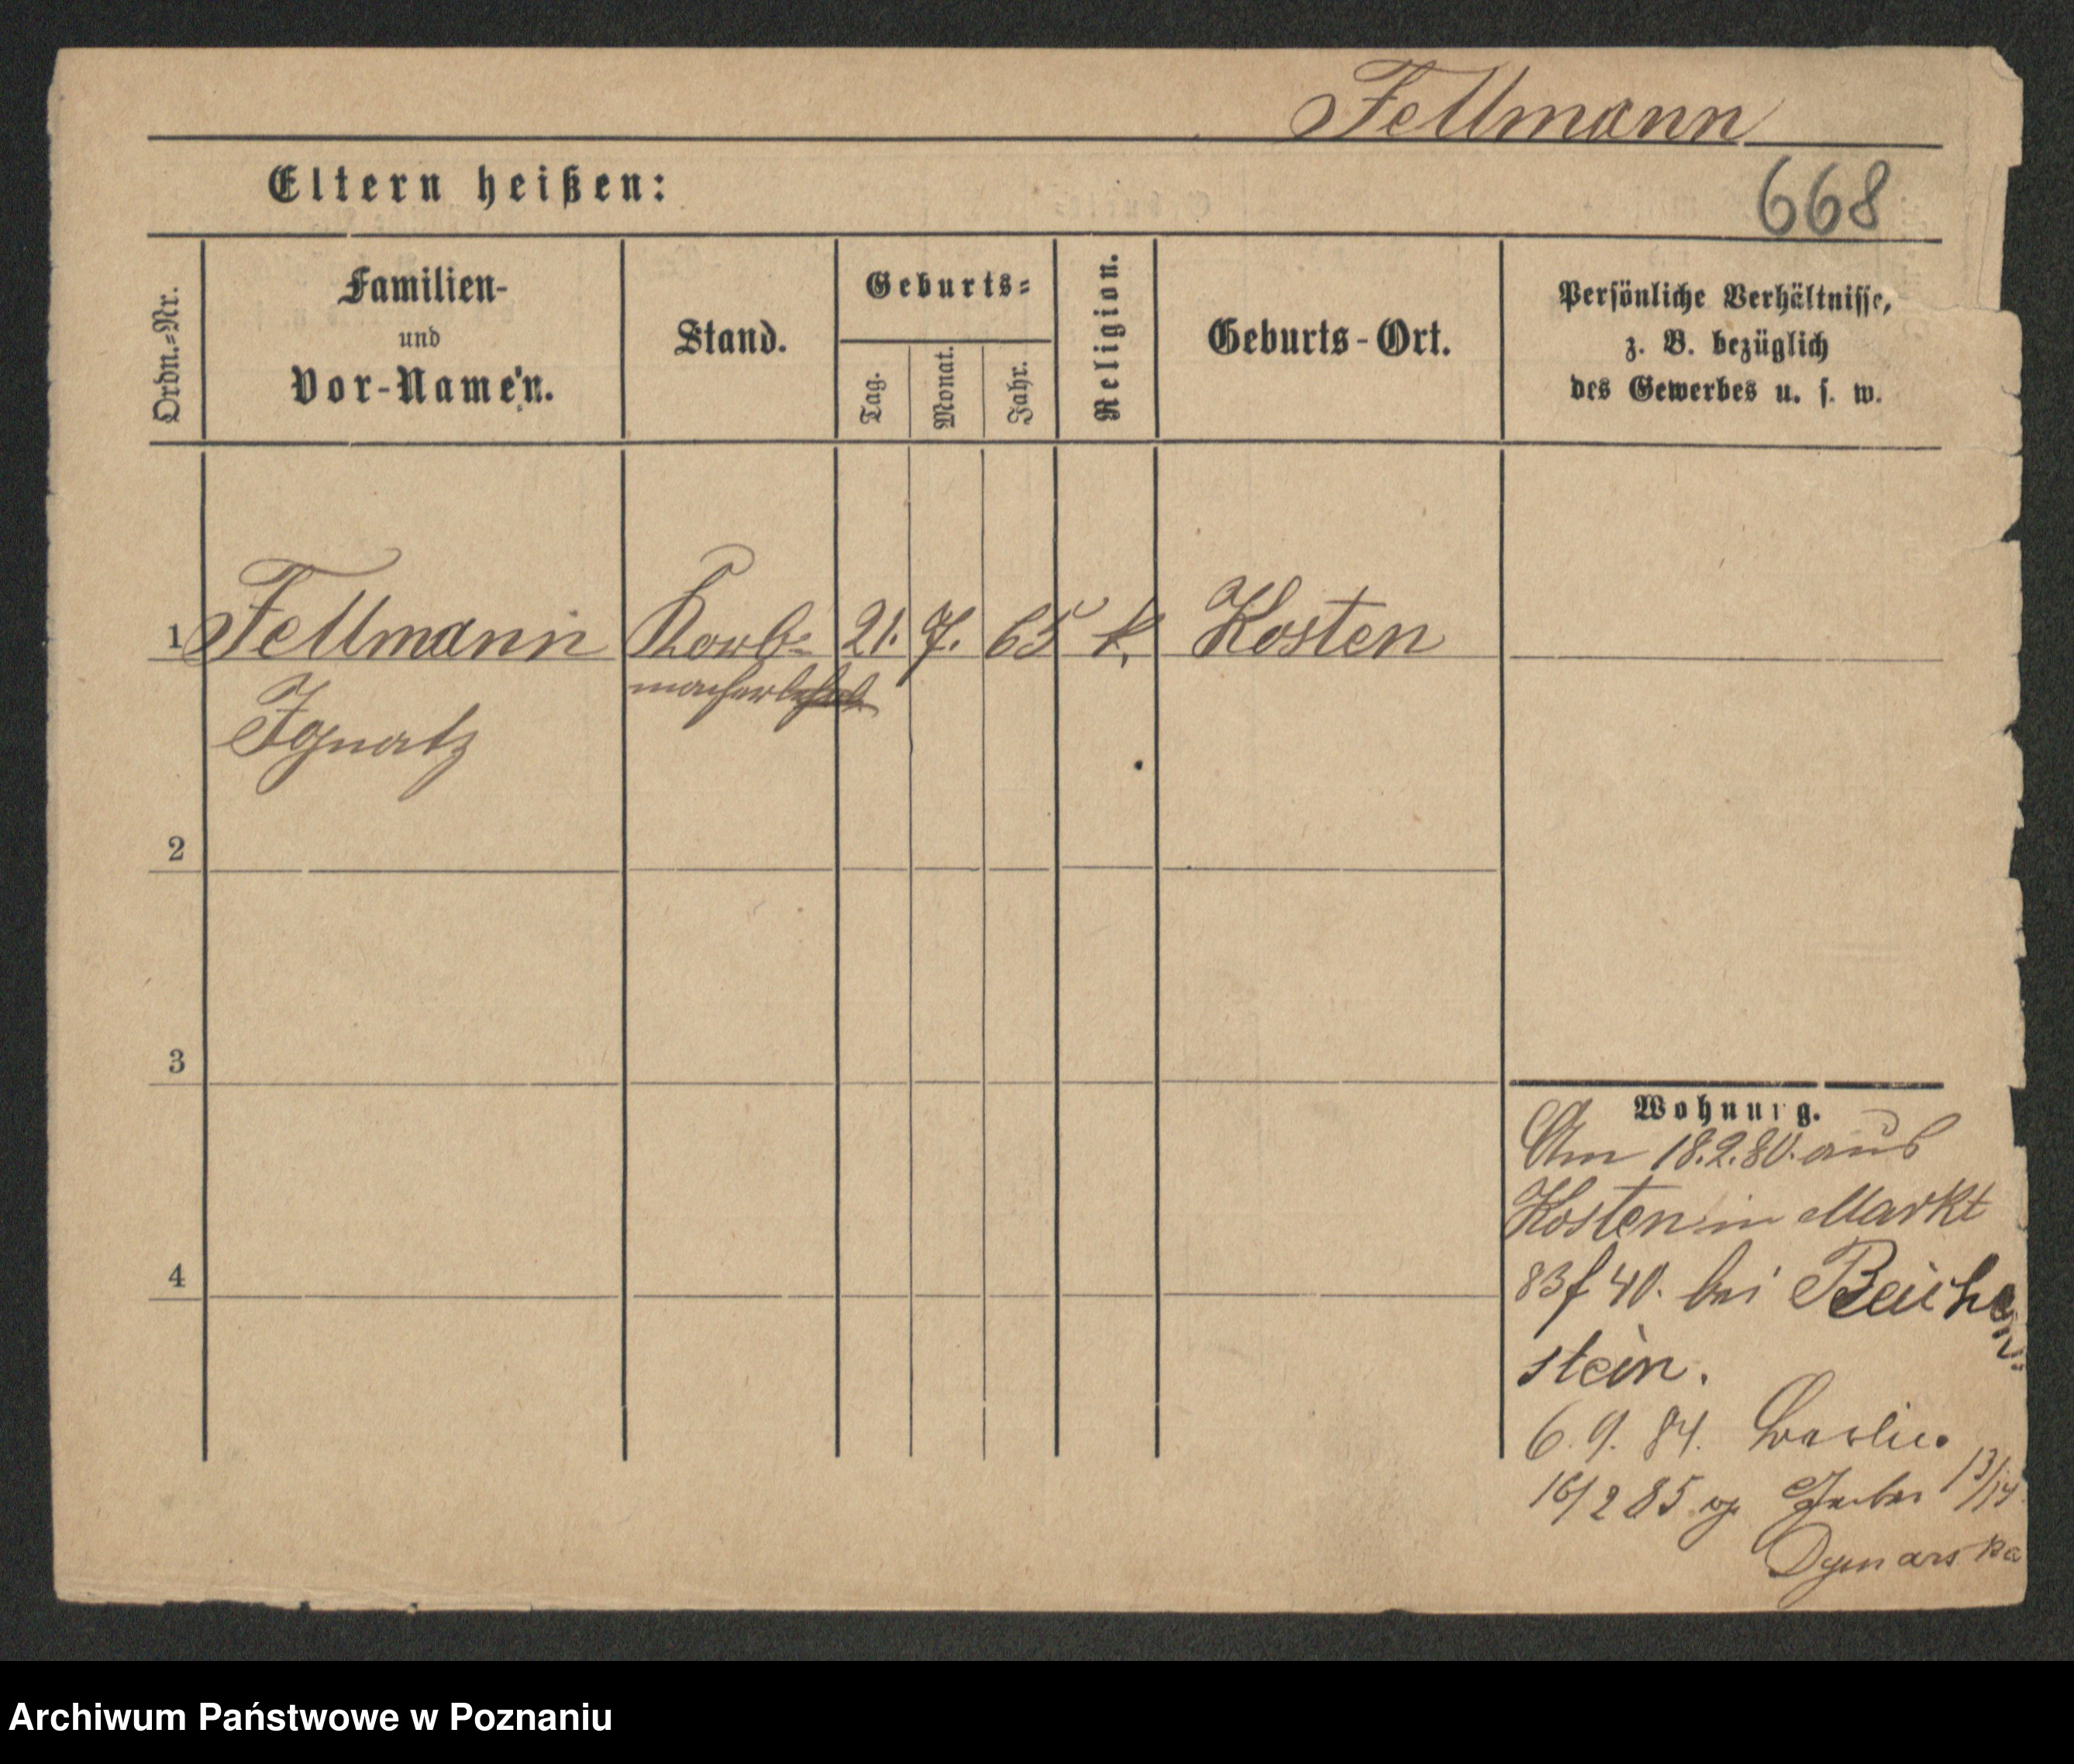 Fellmann
Eltern heißen:
668
Ordn.-Nr.
Familien-
und
Vor-Namen.
Stand.
Geburts-
Tag.
Monat.
Jahr.
Religion.
Geburts-Ort.
Persönliche Verhältnisse,
z. B. bezüglich
des Gewerbes u. s. w.
1 Fellmann Korb- 21. 7. 65 k. Kosten
Ignatz macher
2
3
4
Wohnung.
Am 18.2.80. aus
Kosten in Markt
83 f 40. bei Reichen
stein.
6. 9. 84.
16/2 85 13/14
Archiwum Państwowe w Poznaniu